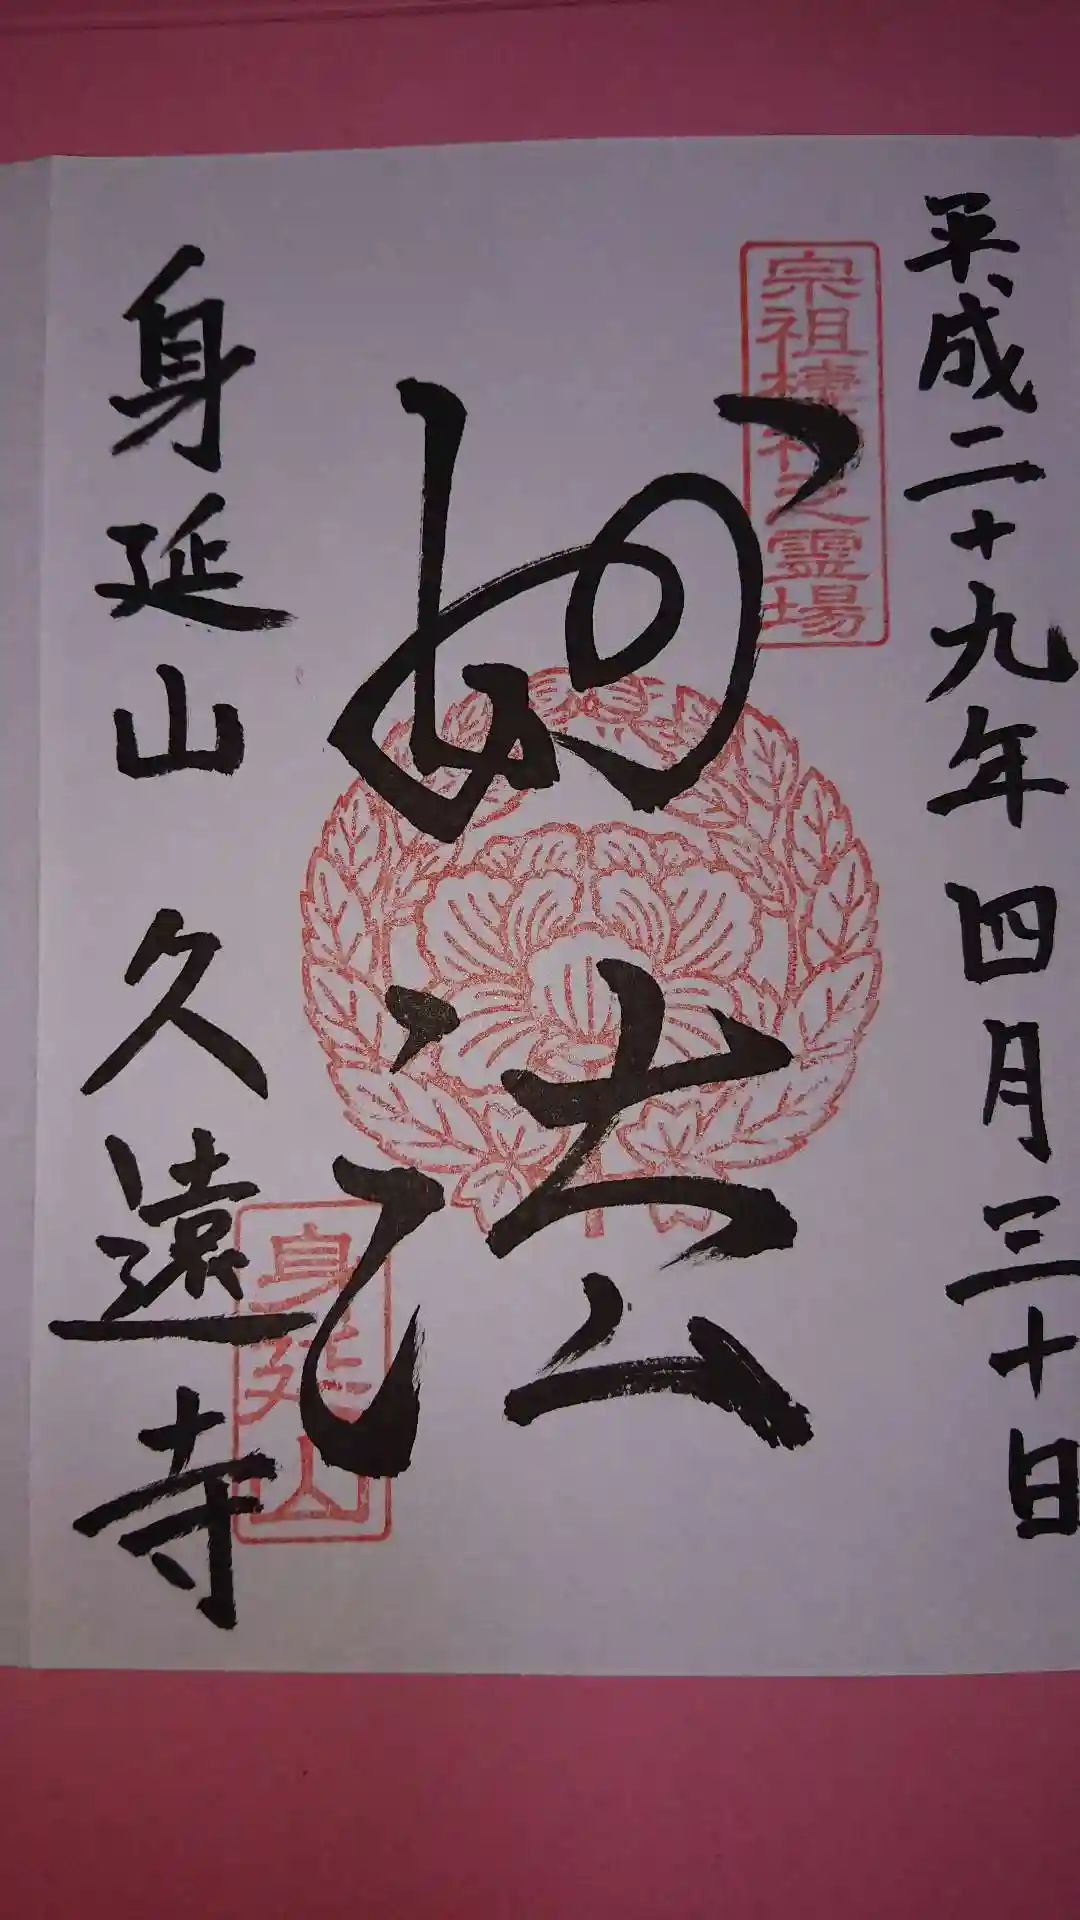 平成二十九年四月三十日
宗祖棲神之霊場
妙法
身延山
身延山久遠寺